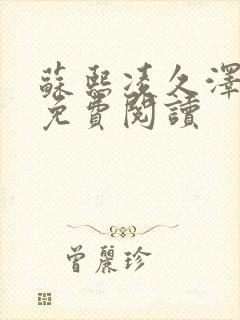 蘇熙凌久澤
免費閱讀
曾麗珍